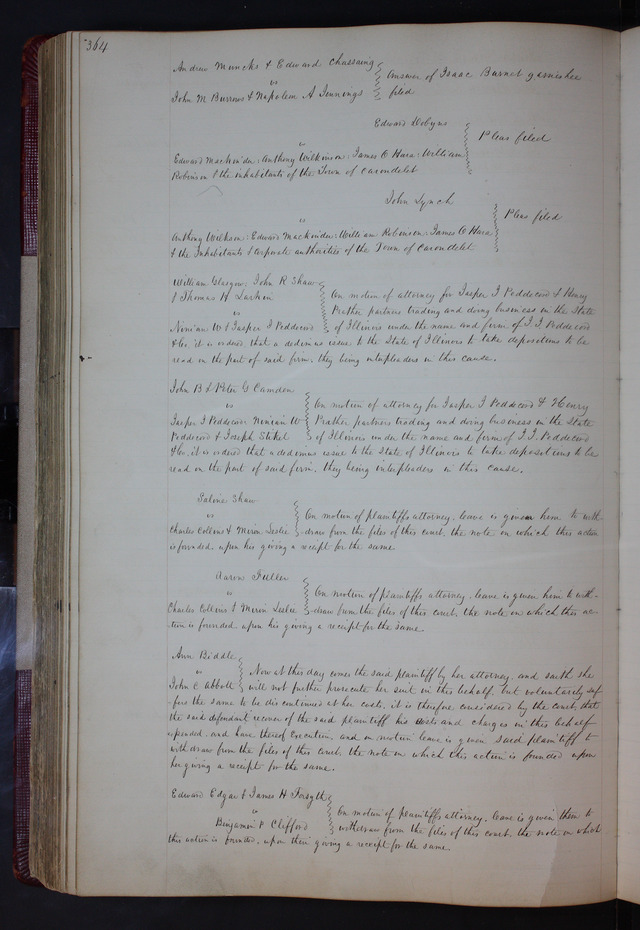 364
Andrew Muncks & Edward Chassaing
vs
John M Burrows & Napoleon A Jennings
Answer of Isaac Burnet garnishee
filed
Edward Dobyns
vs
Edward Mackinder: Anthony Wilkinson: James O Hara: William
Robinson & the inhabitants of the Town of Carondelet
Pleas filed
John Lynch
vs
Anthony Wilkson: Edward Mackinder: William Robinson: James O Hara
& the Inhabitants & Corporate authorities of the Town of Carondelet
Pleas filed
William Glasgow: John R Shaw
& Thomas H Larkin
vs
Ninian W & Jasper I Peddecord
On motion of attorney for Jasper I Peddecord & Henry
Prather partners trading and doing business in the State
of Illinois under the name and firm of I. I Peddecord
&Co. it is ordered that a dedimus issue to the State of Illinois to take depositions to be
read on the part of said firm, they being interpleaders in this cause.
John B & Peter G Camden
vs
Jasper I Peddecord: Niniain W
Peddecord & Joseph Stikel
On motion of attorney for Jasper I Peddecord & Henry
Prather partners trading and doing business in the State
of Illinois under the name and firm of I. I. Peddecord
&Co. it is ordered that a dedimus issue to the State of Illinois to take depositions to be
read on the part of said firm, they being interpleaders in this cause.
Shaw
vs
Charles Collins & Miron Leslie
On motion of plaintiffs attorney, leave is given him to with-
draw from the files of this court, the note on which this action
is founded, upon his giving a receipt for the same
Aaron Fuller
vs
Charles Collins & Miron Leslie
On motion of plaintiffs attorney, leave is given him to with-
draw from the files of this court, the note on which this ac-
tion is founded upon his giving a receipt for the same.
Ann Biddle
vs
John C Abbott
Now at this day comes the said plaintiff by her attorney, and saith she
will not further prosecute her suit in this behalf, but voluntarily suf-
fers the same to be discontinued at her costs, it is therefore considered by the court, that
the said defendant recover of the said plaintiff his costs and charges in this behalf
expended, and have thereof Execution, and on motion leave is given said plaintiff to
withdraw from the files of this court, the note on which this action is founded upon
her giving a receipt for the same.
Edward Edgar & James H Forsyth
vs
Benjamin F Clifford
On motion of plaintiffs attorney, leave is given them to
withdraw from the files of this court, the note on which
this action is founded, upon their giving a receipt for the same.